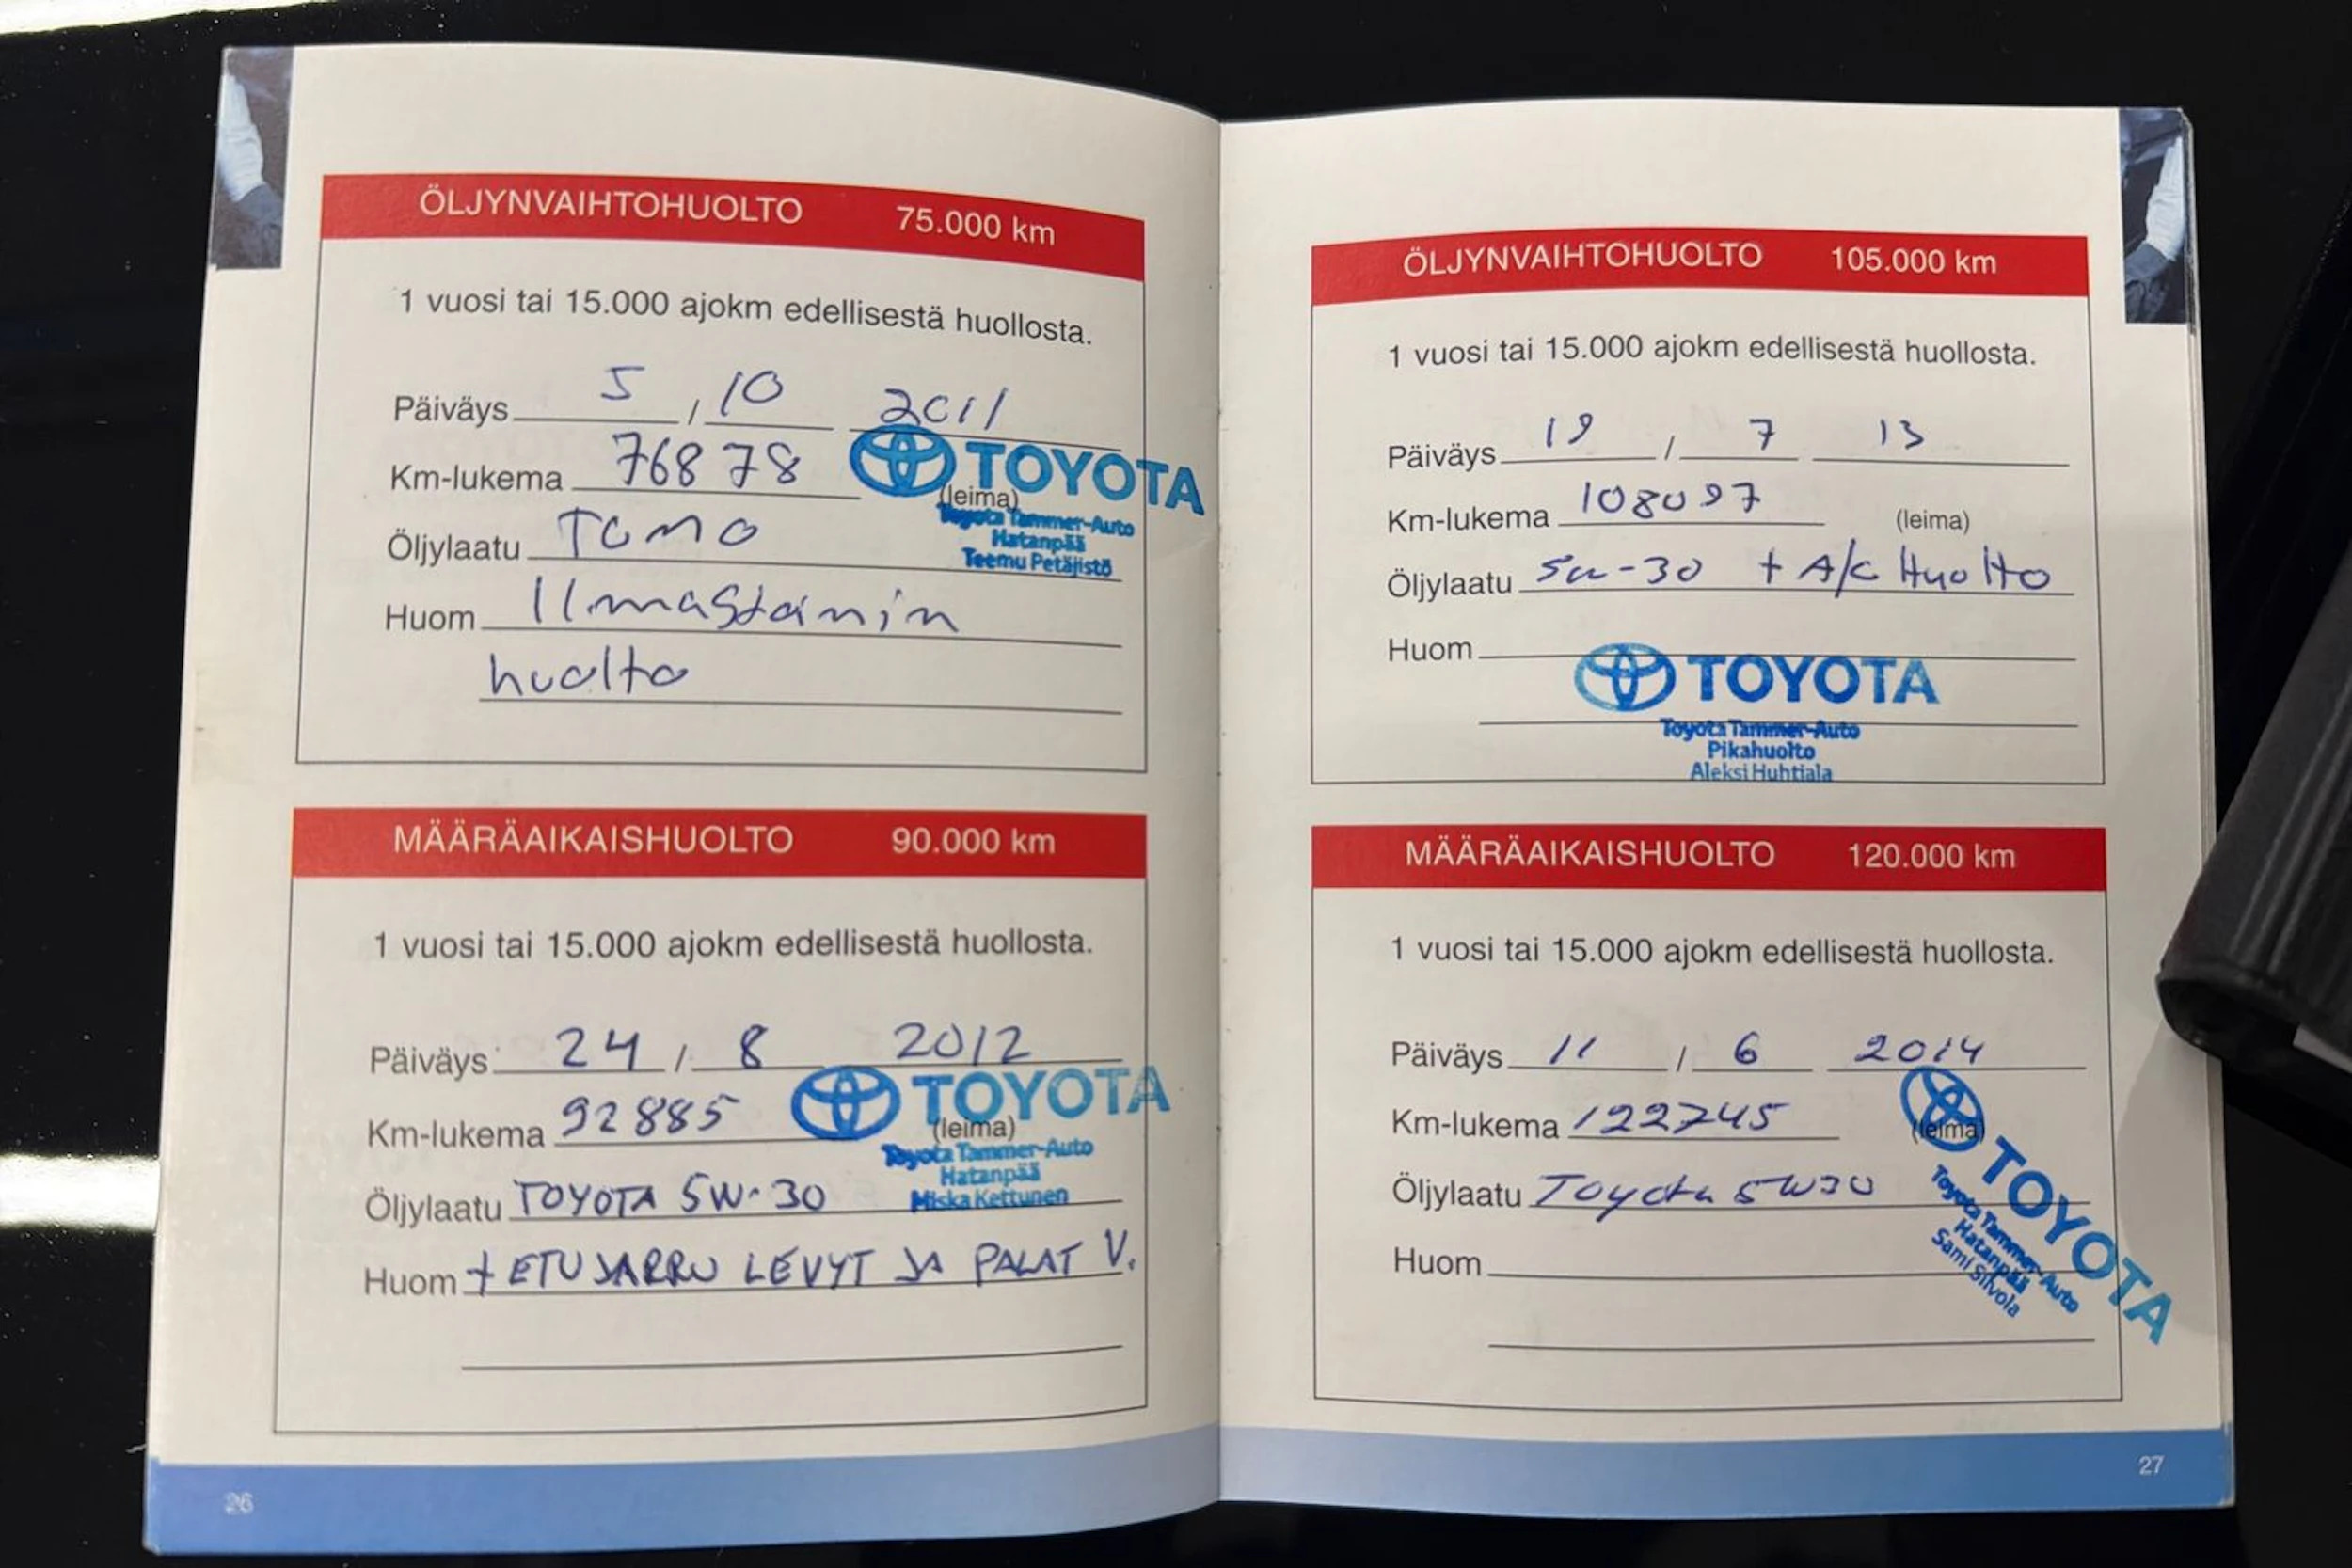 ÖLJYNVAIHTOHUOLTO 75.000 km
1 vuosi tai 15.000 ajokm edellisestä huollosta.
Päiväys 5 / 10 2011
Km-lukema 76878
TOYOTA
(leima)
Toyota Tammer-Auto
Hatanpää
Teemu Petäjistö
Öljylaatu
Huom Ilmastoinin
huolto
MÄÄRÄAIKAISHUOLTO 90.000 km
1 vuosi tai 15.000 ajokm edellisestä huollosta.
Päiväys 24 / 8 2012
Km-lukema 92885
TOYOTA
(leima)
Toyota Tammer-Auto
Hatanpää
Miska Kettunen
Öljylaatu TOYOTA 5W-30
Huom + ETUJARRU LEVYT JA PALAT V.
26
ÖLJYNVAIHTOHUOLTO 105.000 km
1 vuosi tai 15.000 ajokm edellisestä huollosta.
Päiväys 19 / 7 13
Km-lukema 108097 (leima)
Öljylaatu 5w-30 + A/C Huolto
Huom
TOYOTA
Toyota Tammer-Auto
Pikahuolto
Aleksi Huhtiala
MÄÄRÄAIKAISHUOLTO 120.000 km
1 vuosi tai 15.000 ajokm edellisestä huollosta.
Päiväys 11 / 6 2014
Km-lukema 122745
(leima)
Öljylaatu Toyota 5W30
Huom
TOYOTA
Toyota Tammer-Auto
Hatanpää
Sami Silvola
27